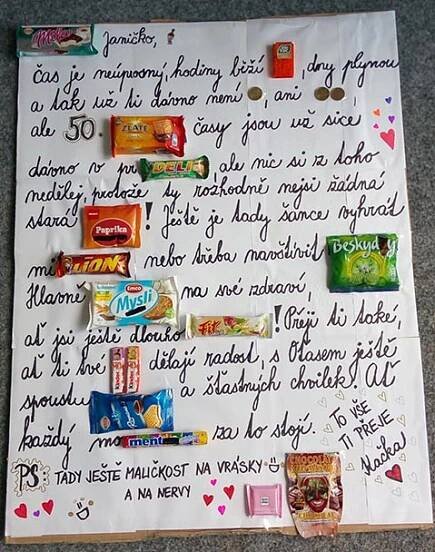 Milka Janičko,
čas je neúprosný, hodiny běží tic tac, dny plynou
a tak už ti dávno není, ani
ale 50. ZLATÉ časy jsou už sice
dávno v pr DELI, ale nic si z toho
nedělej, protože ty rozhodně nejsi žádná
stará Paprika! Ještě je tady šance vyhrát
mi LION nebo třeba navštívit Beskydy
Hlavně Emco Mysli na své zdraví,
ať jsi ještě dlouho Fit! Přeji ti také,
ať ti tvé Kinder dělají radost, s Otasem ještě
spoustu a šťastných chvilek. Ať
každý mo ment za to stojí. TO VŠE
TI PŘEJE
Mačka
PS TADY JEŠTĚ MALIČKOST NA VRÁSKY
A NA NERVY
CHOCOLATE